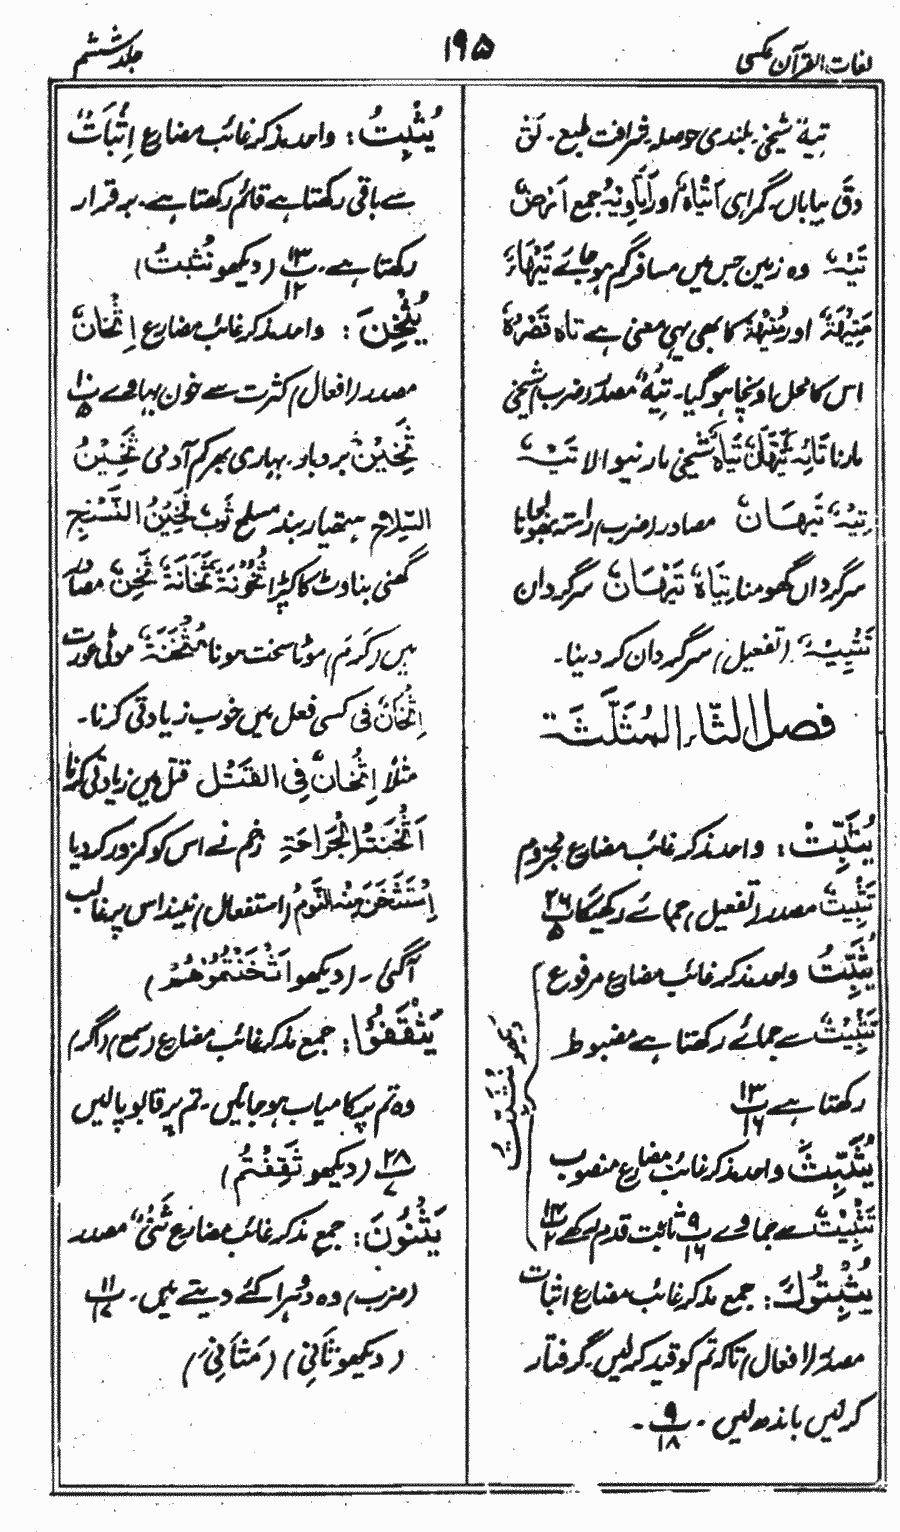 لغات القرآن عکسی
۱۹۵
جلد ششم
تیہٌ شیخی بلندی حوصلہ شرافت طبع۔ لق
و دق بیاباں۔ گمراہی اَتْیَاہٌ اور اَتَاوِیْہُ جمع اَرْضٌ
تِیْہٌ وہ زمین جس میں مسافر گم ہو جائے تَیْہَاءُ
مَتِیْہَۃٌ اور مُتِیْہَۃٌ کا بھی یہی معنی ہے تاہ قَصْرُہٗ
اس کا محل اونچا ہو گیا۔ تِیْہٌ مصدر ضرب شیخی
مارنا تَائِہٌ تَیْہَانٌ تَیَّاہٌ شیخی مارنیوالا تَیْہٌ
تِیْہٌ تَیَہَانٌ مصادر (ضرب) راستہ بھولجانا
سرگرداں گھومنا تَیَّاہٌ تَیْہَانٌ سرگردان
تَتْیِیْہٌ (تفعیل) سرگردان کر دینا۔
فصل الثاء المثلثۃ
یُثَبِّتْ: واحد مذکر غائب مضارع مجزوم
تَثْبِیتٌ مصدر (تفعیل) جمائے رکھیگا پ ۲۶/۵
یُثَبِّتُ واحد مذکر غائب مضارع مرفوع
تَثْبِیْتٌ سے جمائے رکھتا ہے مضبوط
رکھتا ہے پ ۱۳/۱۶
یُثَبِّتَ واحد مذکر غائب مضارع منصوب
تَثْبِیْتٌ سے جما وے پ ۹/۱۶ ثابت قدم رکھے پ ۱۴/۲
دیکھو نُثَبِّتُ
یُثْبِتُوْكَ: جمع مذکر غائب مضارع اثبات
مصدر (افعال) تاکہ تم کو قید کر لیں۔ گرفتار
کر لیں باندھ لیں۔ پ ۹/۱۸۔
یُثْبِتُ: واحد مذکر غائب مضارع اِثْبَاتٌ
سے باقی رکھتا ہے قائم رکھتا ہے۔ برقرار
رکھتا ہے۔ پ ۱۳/۱۲ (دیکھو نُثَبِّتُ)
یُثْخِنَ: واحد مذکر غائب مضارع اِثْخَانٌ
مصدر (افعال) کثرت سے خون بہاوے پ ۱۰/۵
ثَخِیْنٌ بردبار۔ بہاری بھرکم آدمی ثَخِیْنُ
السِّلَاحِ ہتھیار بند مسلح ثَوْبٌ ثَخِیْنُ النَّسْجِ
گھنی بناوٹ کا کپڑا ثُخُوْنَۃٌ ثَخَانَۃٌ ثَخِنٌ مصادر
ہیں (کَرُمَ) موٹا سخت ہونا مُثْخَنَۃٌ موٹی عورت
اِثْخَانٌ فی کسی فعل میں خوب زیادتی کرنا۔
مثلاً اِثْخَانٌ فِی القَتْل قتل میں زیادتی کرنا
اَثْخَنَتْہُ الْجَرَاحَۃِ زخم نے اس کو کمزور کر دیا
اِسْتَثْخَنَ مِنْہُ النَّوْمُ (استفعال) نیند اس پر غالب
آگئی۔ (دیکھو اَثْخَنْتُمُوْھُمْ)
یَثْقَفُوْا: جمع مذکر غائب مضارع (سمع) (اگر)
وہ تم پر کامیاب ہو جائیں۔ تم پر قابو پا لیں
پ ۲۸/۷ (دیکھو ثَقِفْتُمْ)
یَثْنُوْنَ: جمع مذکر غائب مضارع ثَنْیٌ مصدر
(ضرب) وہ دُہرا کئے دیتے ہیں۔ پ ۱۱/۱۷
(دیکھو ثَانِیَ) (مَثَانِیَ)